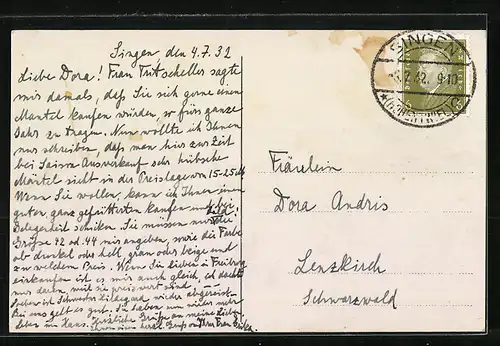 Singen, den 4.7.32
Liebe Dora! Frau Tritscheller sagte
mir damals, daß Sie sich gerne einen
Mantel kaufen würden, so fürs ganze
Jahr zu tragen. Nun wollte ich Ihnen
nur schreiben, daß man hier zur Zeit
bei Saison Ausverkauf sehr hübsche
Mäntel sieht in der Preislage von 15-25 M
Wenn Sie wollen, kann ich Ihnen einen
guten, ganz gefütterten kaufen und bei
Gelegenheit schicken. Sie müssen nur die
bald
Größe 42 od. 44 mir angeben, sowie die Farbe
ob dunkel oder hell, grau oder beige und
zu welchem Preis. Wenn Sie lieber in Freiburg
einkaufen ist es mir auch gleich, ich dachte
nur daran, weil sie preiswert sind.
ist Schwester Hildegard wieder abgereist.
Bei uns geht es gut. Sie haben nun wieder mehr
Leben im Haus. Herzliche Grüße an meine Lieben
Ihnen herzl. Gruß von Ihrer Frau
SINGEN
7.32. 9-10
(HOHENTWIEL)
Fräulein
Dora Andris
Lenzkirch
Schwarzwald